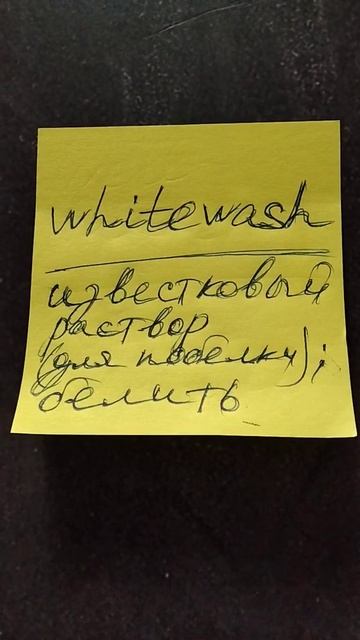 whitewash
известковый
раствор
(для побелки);
белить